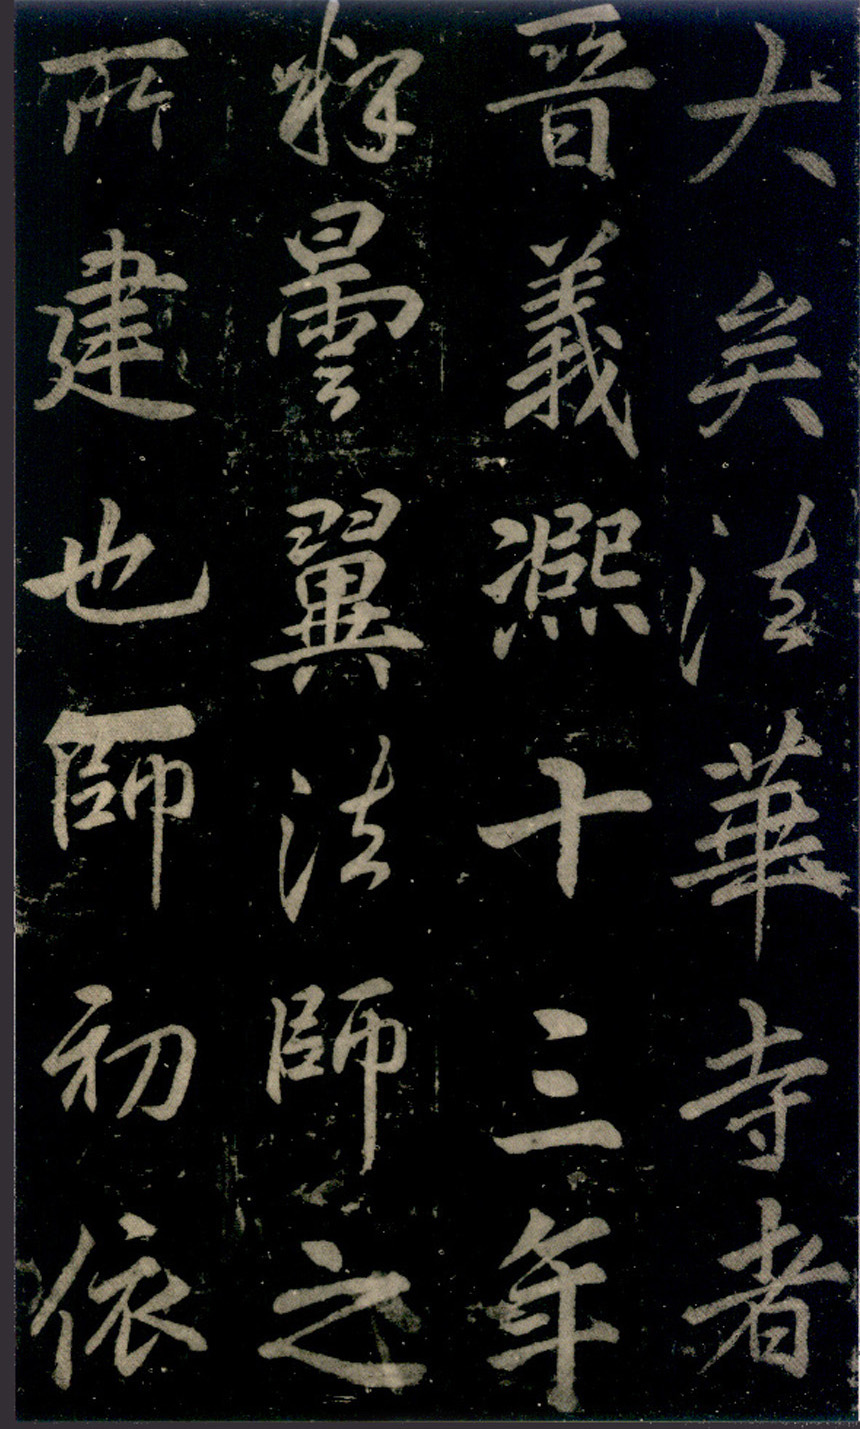 大矣法華寺者
晋義熈十三年
釋曇翼法師之
所建也師初依